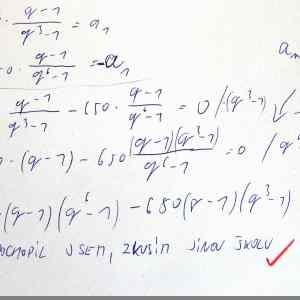 · (q-1)/(q³-1) = a₁
0 · (q-1)/(q⁶-1) = -a₁
(q-1)/(q³-1) - 650 · (q-1)/(q⁶-1) = 0 / ·(q³-1)
· (q-1) - 650 (q-1)(q³-1)/(q⁶-1) = 0 /
(q-1)(q⁶-1) - 650(q-1)(q³-1)
JSEM, ZKUSÍM JINOU ŠKOLU